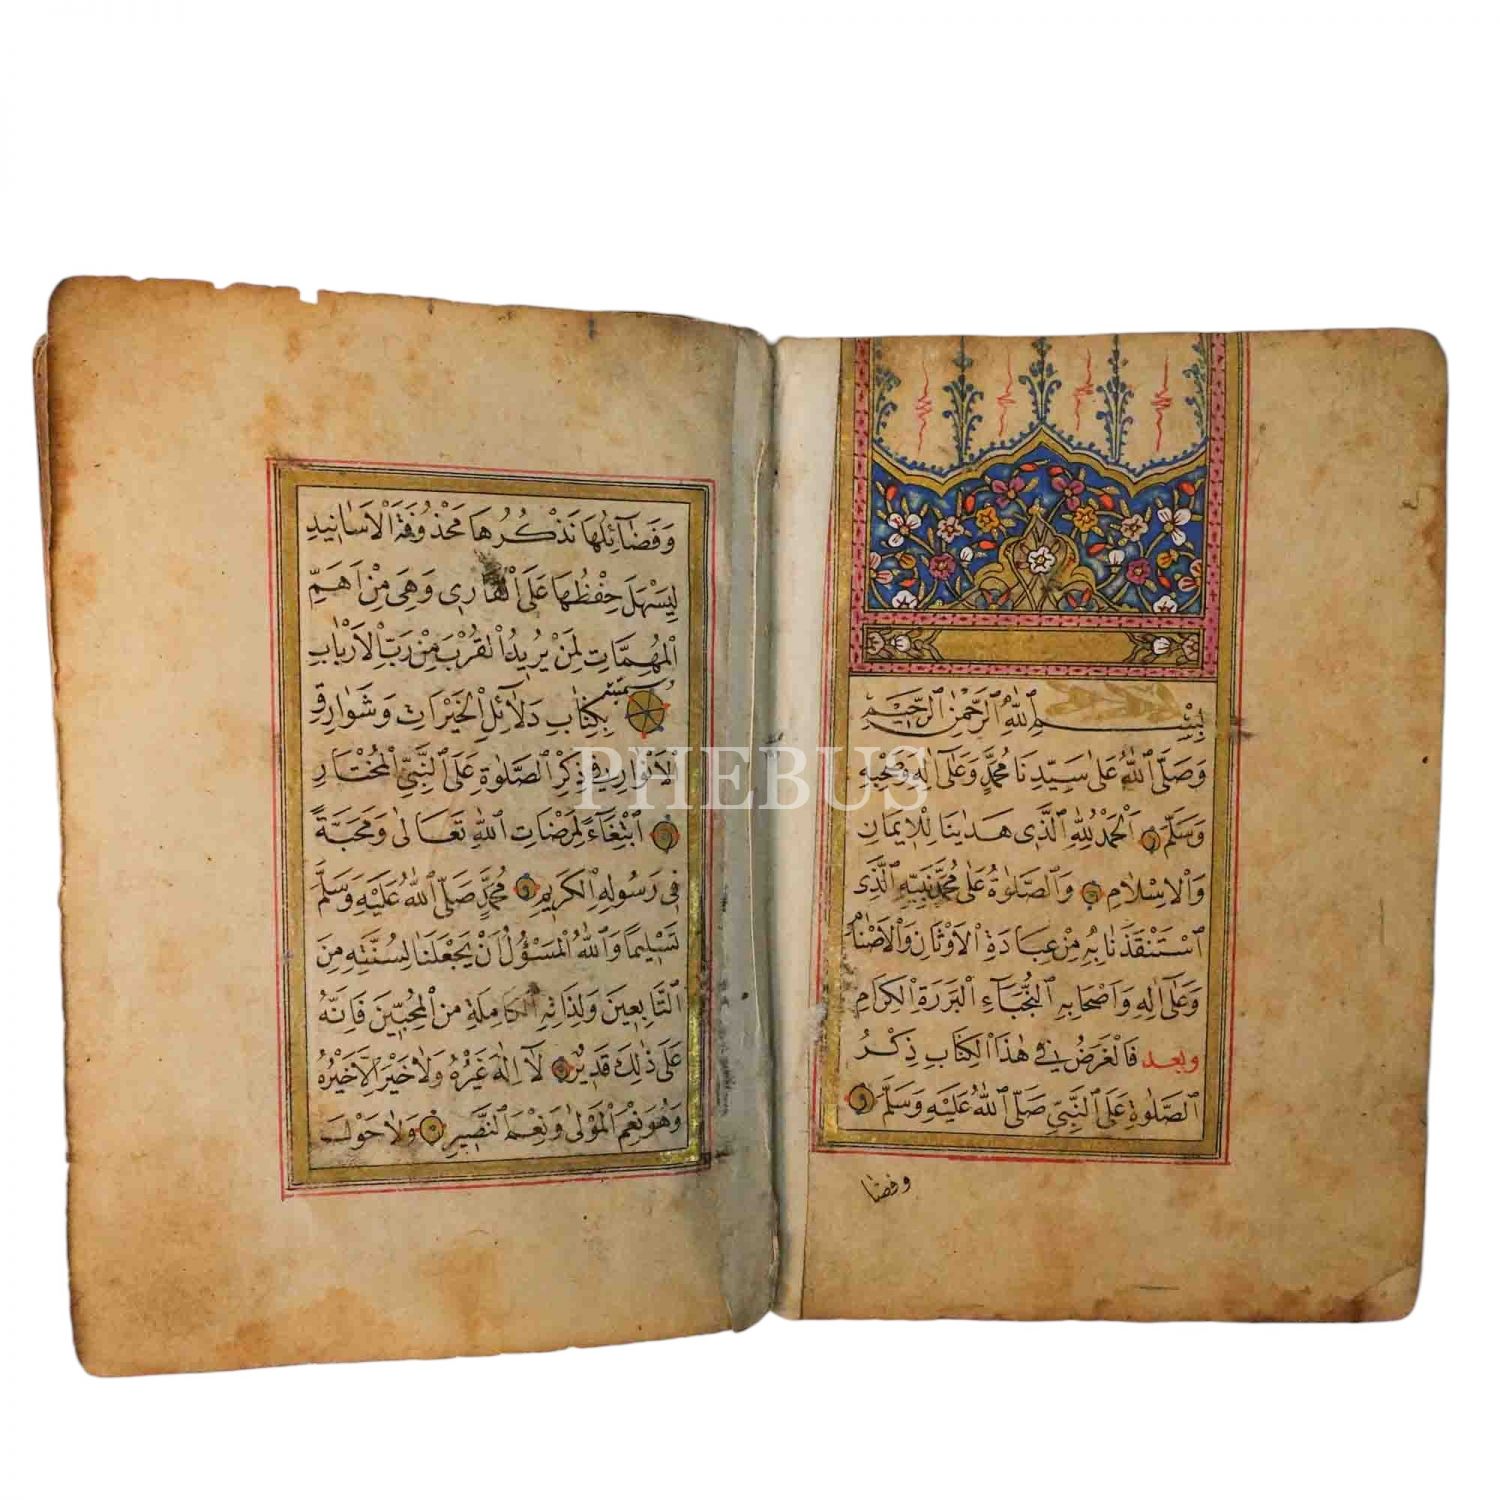 بِسْمِ ٱللّٰهِ ٱلرَّحْمٰنِ ٱلرَّحِيمِ
وَصَلَّى ٱللّٰهُ عَلٰى سَيِّدِنَا مُحَمَّدٍ وَعَلٰٓى اٰلِهٖ وَصَحْبِهٖ
وَسَلَّمَ اَلْحَمْدُ لِلّٰهِ ٱلَّذِى هَدٰينَا لِلْاِيمَانِ
وَالْاِسْلَامِ وَالصَّلٰوةُ عَلٰى مُحَمَّدٍ نَبِيِّهِ ٱلَّذِى
اسْتَنْقَذَنَا بِهٖ مِنْ عِبَادَةِ الْاَوْثَانِ وَالْاَصْنَامِ
وَعَلٰى اٰلِهٖ وَاَصْحَابِهِ النُّجَبَآءِ الْبَرَرَةِ الْكِرَامِ
وبعد فَالْغَرَضُ فِى هٰذَا الْكِتَابِ ذِكْرُ
الصَّلٰوةِ عَلَى النَّبِيِّ صَلَّى ٱللّٰهُ عَلَيْهِ وَسَلَّمَ
وفضا
وَفَضَآئِلُهَا نَذْكُرُهَا مَحْذُوفَةَ الْاَسَانِيدِ
لِيَسْهُلَ حِفْظُهَا عَلَى الْقَارِى وَهِىَ مِنْ اَهَمِّ
الْمُهِمَّاتِ لِمَنْ يُرِيدُ الْقُرْبَ مِنْ رَبِّ الْاَرْبَابِ
وَسَمَّيْتُهُ بِكِتَابِ دَلَآئِلِ الْخَيْرَاتِ وَشَوَارِقِ
الْاَنْوَارِ فِى ذِكْرِ الصَّلٰوةِ عَلَى النَّبِيِّ الْمُخْتَارِ
ابْتِغَآءً لِمَرْضَاتِ اللّٰهِ تَعَالٰى وَمَحَبَّةً
فِى رَسُولِهِ الْكَرِيمِ مُحَمَّدٍ صَلَّى ٱللّٰهُ عَلَيْهِ وَسَلَّمَ
تَسْلِيمًا وَاللّٰهُ الْمَسْؤُلُ اَنْ يَجْعَلَنَا لِسُنَّتِهٖ مِنَ
التَّابِعِينَ وَلِذَاتِهِ الْكَامِلَةِ مِنَ الْمُحِبِّينَ فَاِنَّهُ
عَلٰى ذٰلِكَ قَدِيرٌ لَآ اِلٰهَ غَيْرُهُ وَلَا خَيْرَ اِلَّا خَيْرُهُ
وَهُوَ نِعْمَ الْمَوْلٰى وَنِعْمَ النَّصِيرِ وَلَا حَوْلَ
PHEBUS